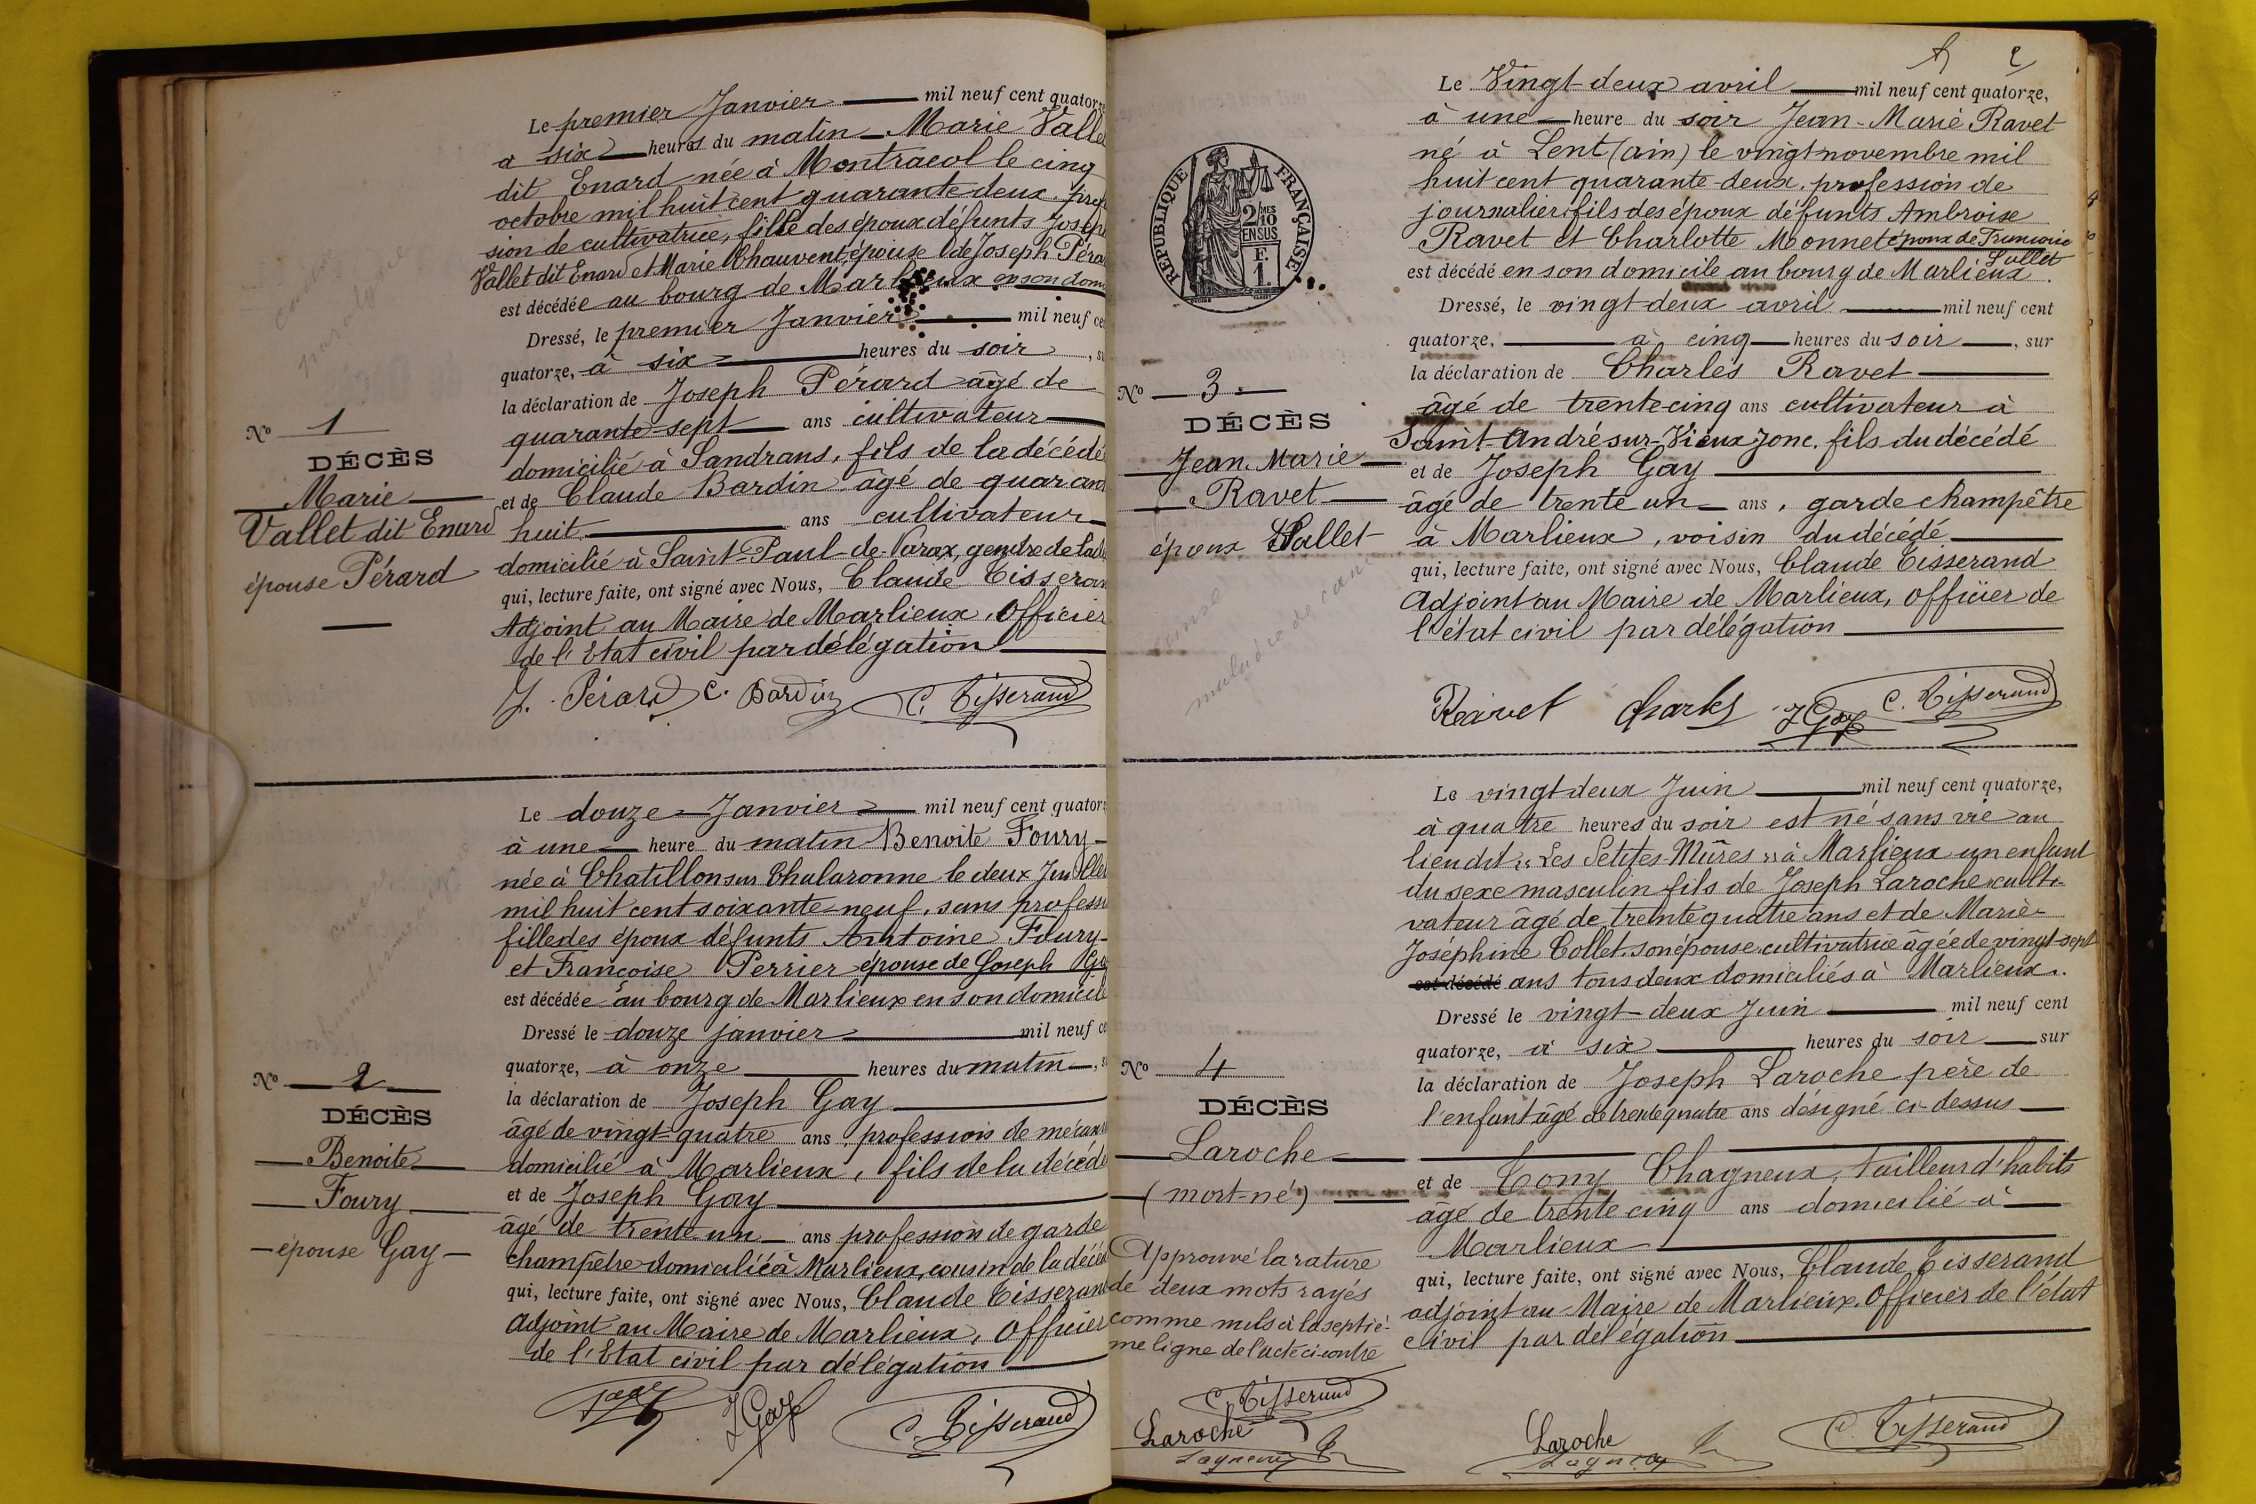 Le premier Janvier mil neuf cent quatorze
à six heures du matin Marie Vallet
dit Enard née à Montracol le cinq
octobre mil huit cent quarante-deux. profes
sion de cultivatrice, fille des époux défunts Joseph
Vallet dit Enard et Marie Chauvent, épouse de Joseph Péra
est décédée au bourg de Marlieux en son domi
Dressé, le premier Janvier mil neuf ce
quatorze, à six heures du soir, su
la déclaration de Joseph Pérard âgé de
quarante-sept ans cultivateur
domicilié à Sandrans, fils de la décédée
et de Claude Bardin âgé de quarante
huit ans cultivateur
domicilié à Saint-Paul-de-Varax, gendre de la dé
qui, lecture faite, ont signé avec Nous, Claude Tisseran
Adjoint au Maire de Marlieux, Officier
de l'Etat civil par délégation
J. Pérard C. Bardin C. Tisserand
No 1
DÉCÈS
Marie
Vallet dit Enard
épouse Pérard
Le douze Janvier mil neuf cent quatorz
à une heure du matin Benoite Foury
née à Chatillon sur Chalaronne le deux Juillet
mil huit cent soixante-neuf, sans professi
fille des époux défunts Antoine Foury
et Françoise Perrier épouse de Joseph Ga
est décédée au bourg de Marlieux en son domicile
Dressé le douze janvier mil neuf ce
quatorze, à onze heures du matin, s
la déclaration de Joseph Gay
âgé de vingt-quatre ans, profession de mécani
domicilié à Marlieux, fils de la décédé
et de Joseph Gay
âgé de trente un ans profession de garde
champêtre domicilié à Marlieux, cousin de la décéd
qui, lecture faite, ont signé avec Nous, Claude Tisserand
Adjoint au Maire de Marlieux, Officier
de l'Etat civil par délégation
J Gay C. Tisserand
No 2
DÉCÈS
Benoite
Foury
épouse Gay
2
RÉPUBLIQUE FRANÇAISE
2/10 MES
EN SUS
F.
1.
Le Vingt-deux avril mil neuf cent quatorze,
à une heure du soir Jean-Marie Ravet
né à Lent (ain) le vingt novembre mil
huit cent quarante-deux, profession de
journalier, fils des époux défunts Ambroise
Ravet et Charlotte Monnet époux de Francoise
Sallet
est décédé en son domicile au bourg de Marlieux.
Dressé, le vingt-deux avril mil neuf cent
quatorze, à cinq heures du soir, sur
la déclaration de Charles Ravet
âgé de trente cinq ans cultivateur à
Saint-André sur-Vieux Jonc. fils du décédé
et de Joseph Gay
âgé de trente un ans, garde champêtre
à Marlieux, voisin du décédé
qui, lecture faite, ont signé avec Nous, Claude Tisserand
Adjoint au Maire de Marlieux, officier de
l'état civil par délégation
Ravet Charles J Gay C. Tisserand
No 3
DÉCÈS
Jean Marie
Ravet
époux Sallet
maladie de
Le vingt-deux Juin mil neuf cent quatorze,
à quatre heures du soir est né sans vie au
lieu dit "Les Petites Mûres" à Marlieux un enfant
du sexe masculin fils de Joseph Laroche culti-
vateur âgé de trente quatre ans et de Marie
Joséphine Collet, son épouse cultivatrice âgée de vingt-sept
est décédé ans tous deux domiciliés à Marlieux.
Dressé le vingt-deux Juin mil neuf cent
quatorze, à six heures du soir sur
la déclaration de Joseph Laroche père de
l'enfant âgé de trente quatre ans désigné ci-dessus
et de Tony Chagneux, tailleur d'habits
âgé de trente cinq ans domicilié à
Marlieux
qui, lecture faite, ont signé avec Nous, Claude Tisserand
adjoint au Maire de Marlieux, Officier de l'état
civil par délégation
Laroche C. Tisserand
No 4
DÉCÈS
Laroche
(mort-né)
Approuvé la rature
de deux mots rayés
comme nuls à la septiè-
me ligne de l'acte ci-contre
C. Tisserand
Laroche